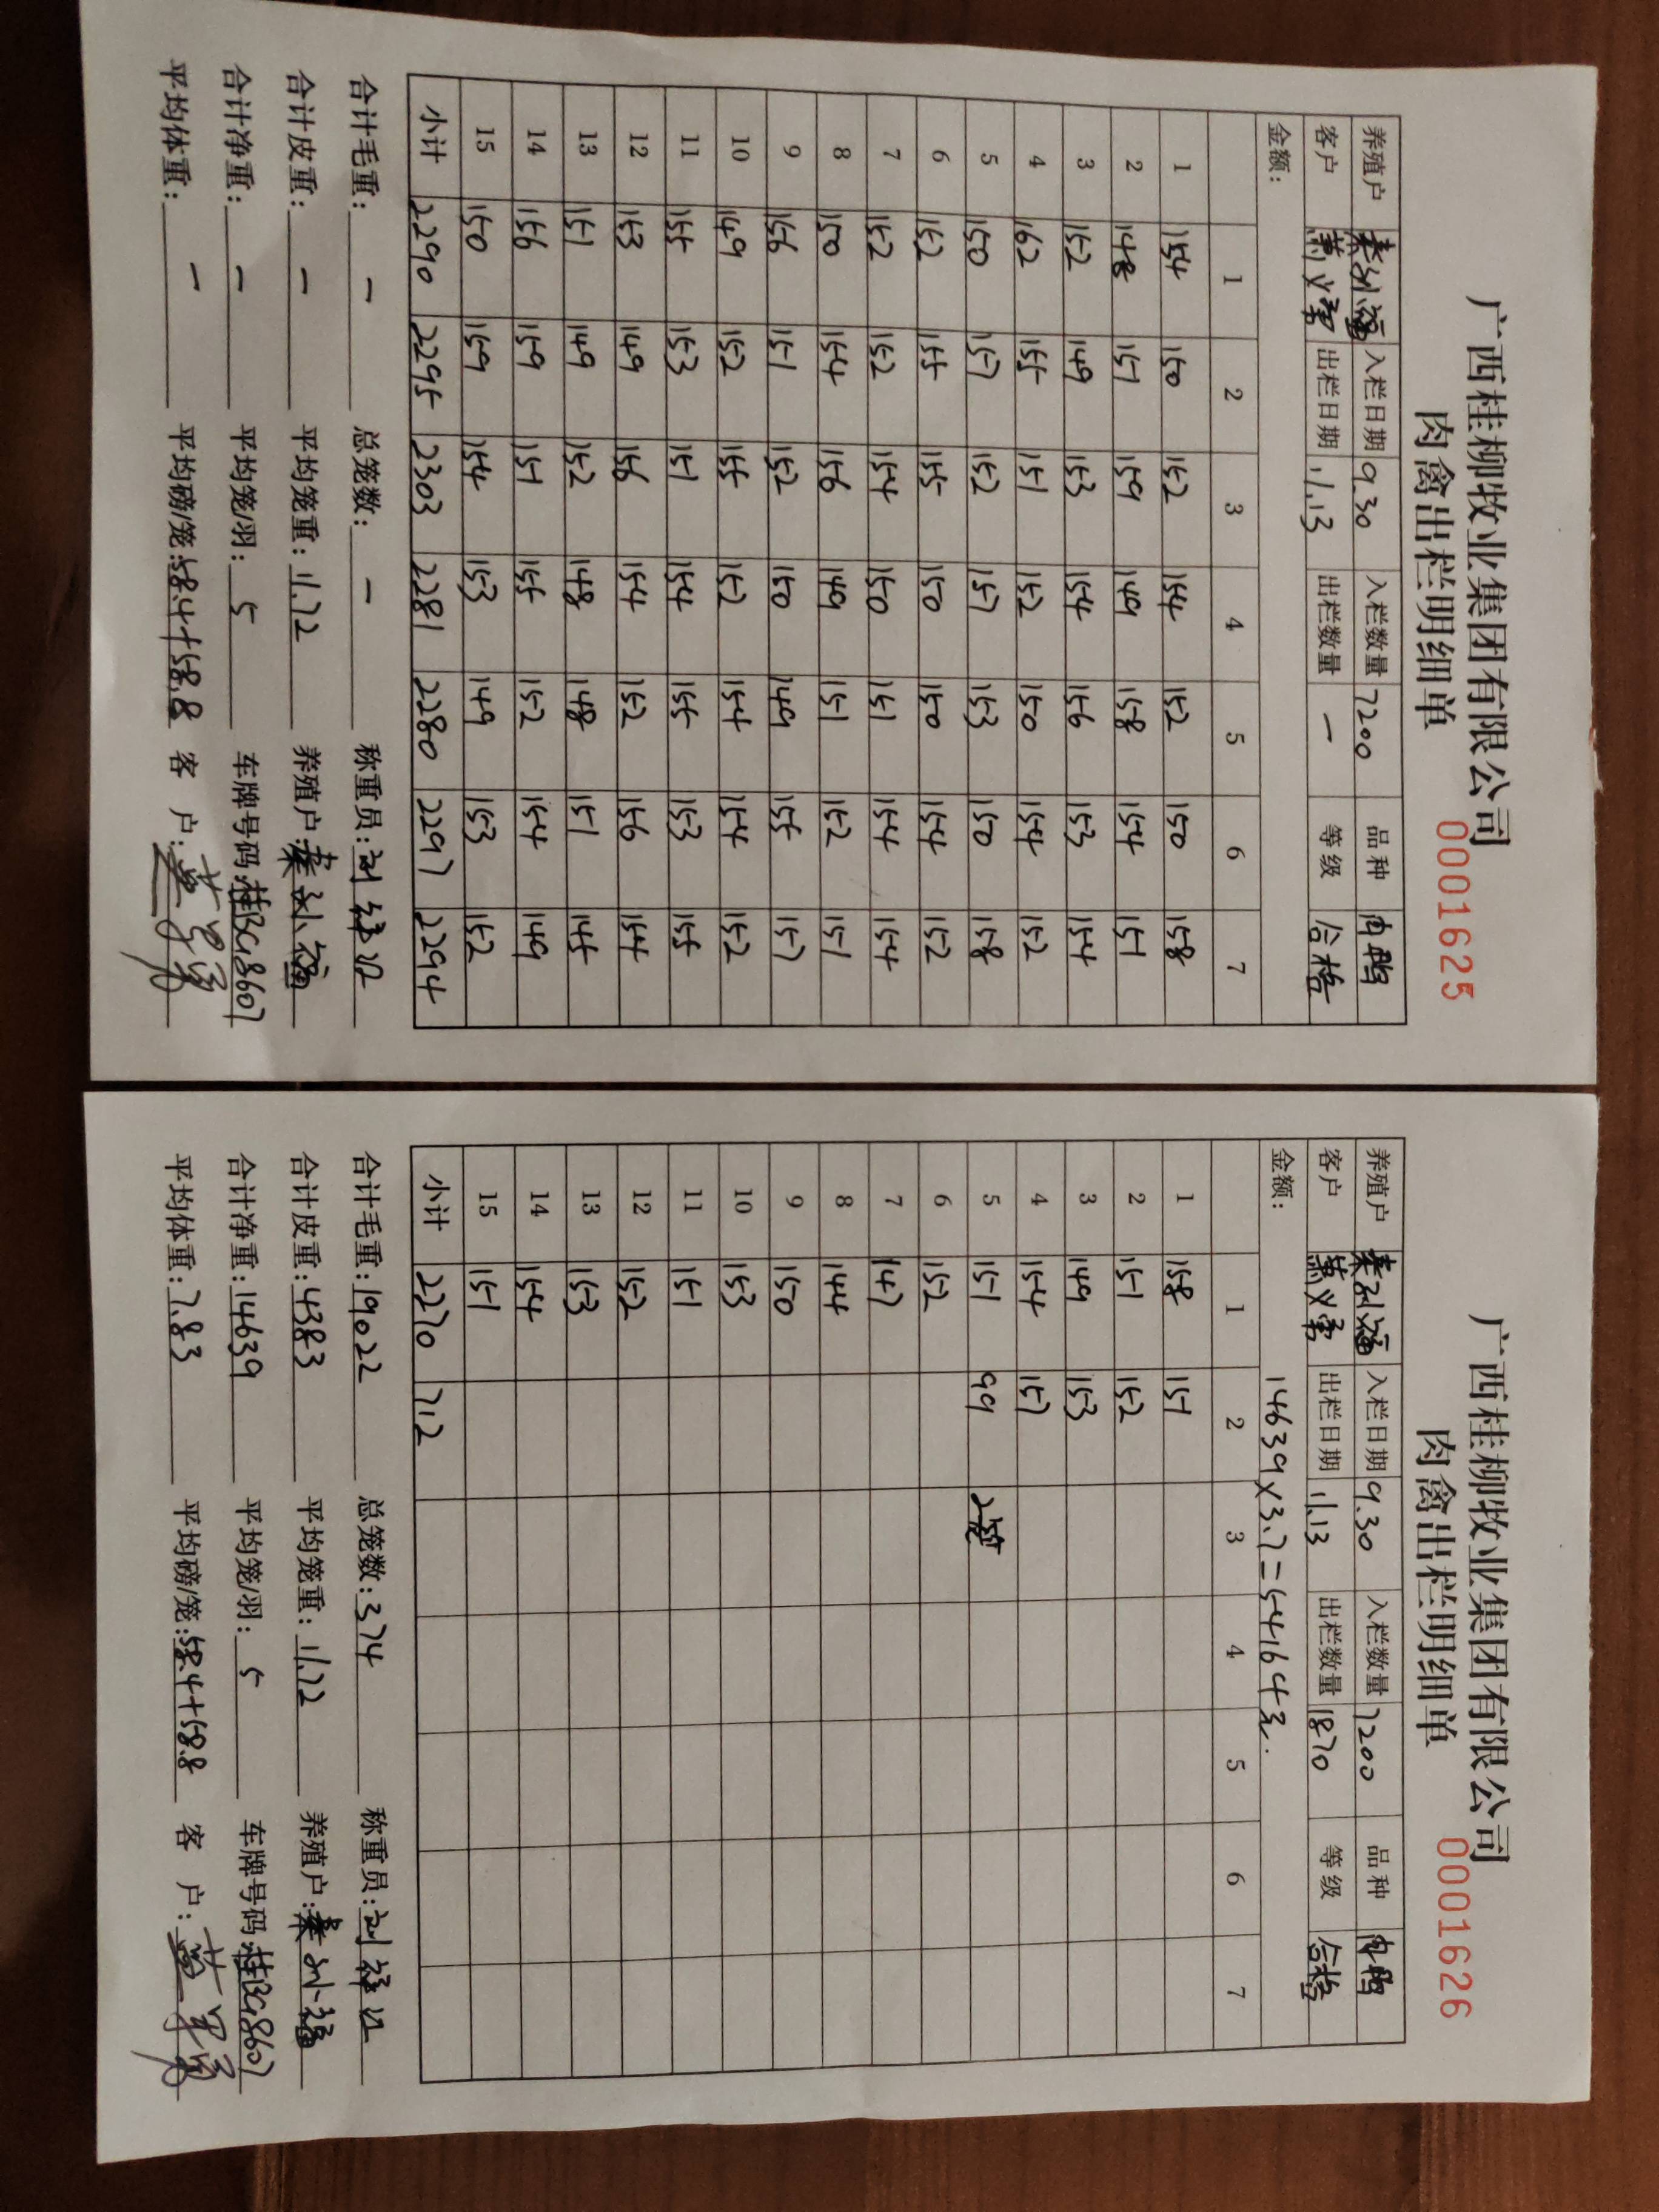 广西桂柳牧业集团有限公司
肉禽出栏明细单 0001625
养殖户 入栏日期 9.30 入栏数量 7200 品种 肉鸭
客户 出栏日期 11.13 出栏数量 一 等级 合格
金额:
1 2 3 4 5 6 7
1 154 150 152 154 152 150 158
2 148 151 159 149 158 154 151
3 152 149 153 154 156 153 154
4 162 155 151 152 150 154 152
5 150 157 152 157 153 150 158
6 152 155 155 150 150 154 152
7 152 152 154 150 151 154 154
8 150 154 156 149 151 152 151
9 156 151 152 150 149 155 157
10 149 152 155 152 154 154 152
11 155 153 151 154 155 153 155
12 153 149 156 154 152 156 154
13 151 149 152 148 148 151 145
14 156 159 151 155 152 154 149
15 150 159 154 153 149 153 152
小计 2290 2295 2303 2281 2280 2297 2294
合计毛重: 一 总笼数: 一 称重员: 刘
合计皮重: 一 平均笼重: 11.72 养殖户:
合计净重: 一 平均笼/羽: 5 车牌号码: 桂BG8607
平均体重: 一 平均磅/笼: 58.4+58.8 客 户:
广西桂柳牧业集团有限公司
肉禽出栏明细单 0001626
养殖户 入栏日期 9.30 入栏数量 7200 品种 肉鸭
客户 出栏日期 11.13 出栏数量 1870 等级 合格
金额: 14639×3.7=54164.3
1 2 3 4 5 6 7
1 158 151
2 151 152
3 149 153
4 154 157
5 151 99 2笼
6 152
7 147
8 144
9 150
10 153
11 151
12 152
13 153
14 154
15 151
小计 2270 712
合计毛重: 19022 总笼数: 374 称重员: 刘
合计皮重: 4383 平均笼重: 11.72 养殖户:
合计净重: 14639 平均笼/羽: 5 车牌号码: 桂BG8607
平均体重: 7.83 平均磅/笼: 58.4+58.8 客 户: